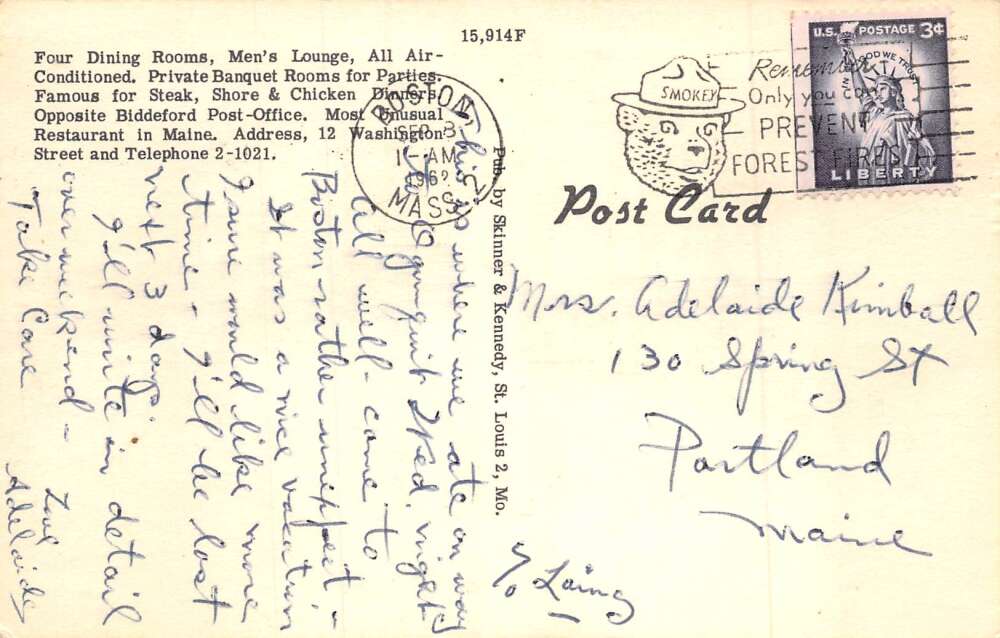 15,914F
Four Dining Rooms, Men's Lounge, All Air-
Conditioned. Private Banquet Rooms for Parties.
Famous for Steak, Shore & Chicken Dinners,
Opposite Biddeford Post-Office. Most Unusual
Restaurant in Maine. Address, 12 Washington
Street and Telephone 2-1021.
BOSTON
SEP 3
AM
196
MASS
SMOKEY
Remember
Only you can
PREVENT
FOREST FIRES
U.S. POSTAGE 3¢
IN GOD WE TRUST
LIBERTY
Post Card
Pub. by Skinner & Kennedy, St. Louis 2, Mo.
This is where we ate on way
to Ogunquit Wed. night
All well - came to
Boston rather unexpect -
It was a nice vacation
I sure would like more
time - I'll be lost
next 3 days.
I'll write in detail
over weekend -
Take Care
Love
Adelaide
Mrs. Adelaide Kimball
130 Spring St
Portland
Maine
c/o Laing